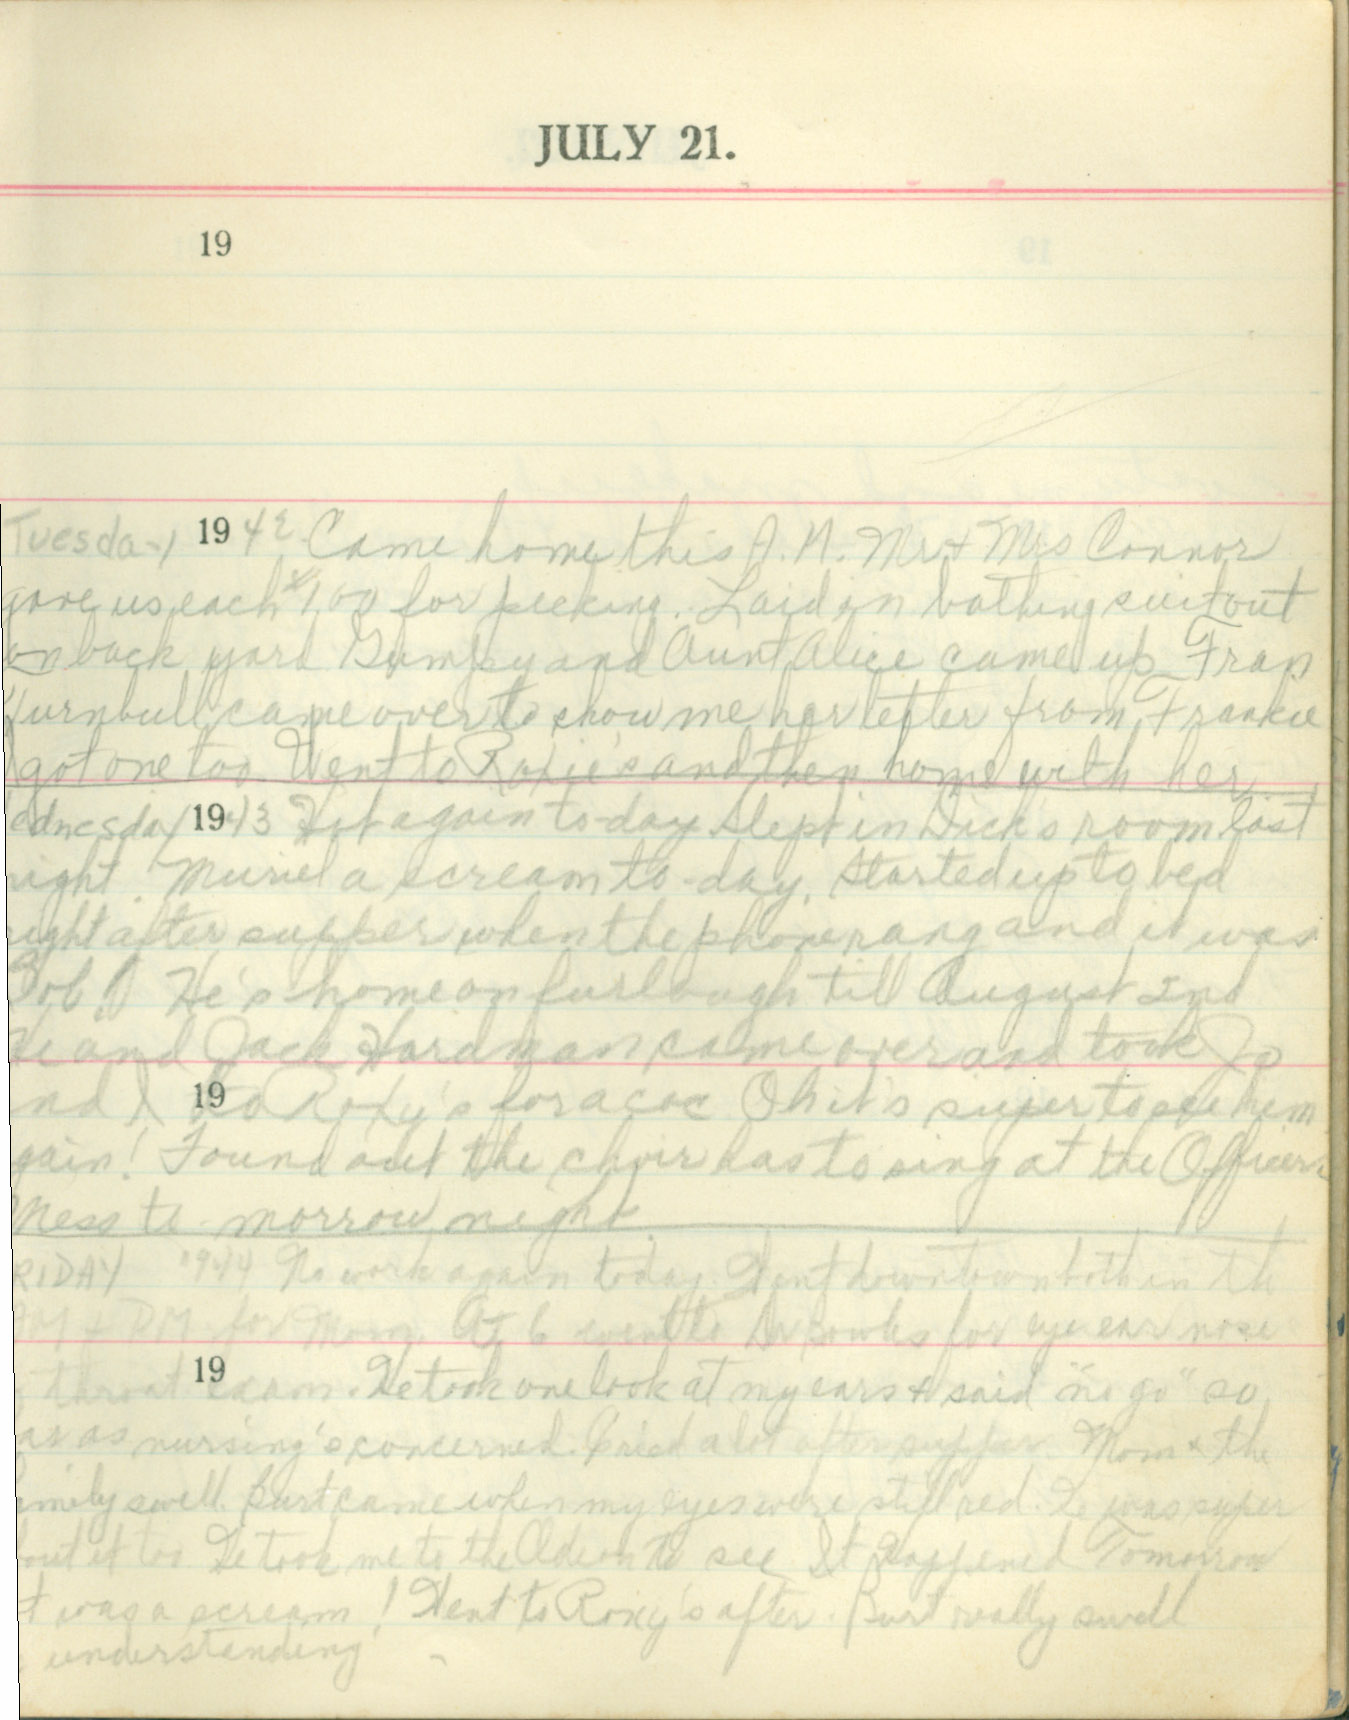 JULY 21.
19
Tuesday 1942 Came home this A.M. Mr & Mrs Connor
gave us each $1.00 for picking. Laid in bathing suit out
on back yard Gumpy and Aunt Alice came up Fran
Turnbull came over to show me her letter from Frankie
I got one too Went to Roxie's and then home with her
ednesday 1943 Hot again to-day Slept in Dick's room last
night. Muriel a scream to-day. Started up to bed
right after supper when the phone rang and it was
Bob J He's home on furlough till August 2nd
He and Jack Hardman came over and took Jo
19
nd I to Roxy's for a coc Oh it's super to see him
gain! Found out the choir has to sing at the Officers
Mess to-morrow night
RIDAY 1944 No work again today. Went downtown both in the
AM & PM for Mom. At 6 went to Dr for eye ear nose
19
throat exam. He took one look at my ears & said "no go" so
ar as nursing's concerned. Cried a lot after supper. Mom & the
amily swell. Burt came when my eyes were still red. He was super
bout it too He took me to the Odeon to see It Happened Tomorrow
t was a scream! Went to Roxy's after. Burt really swell
understanding